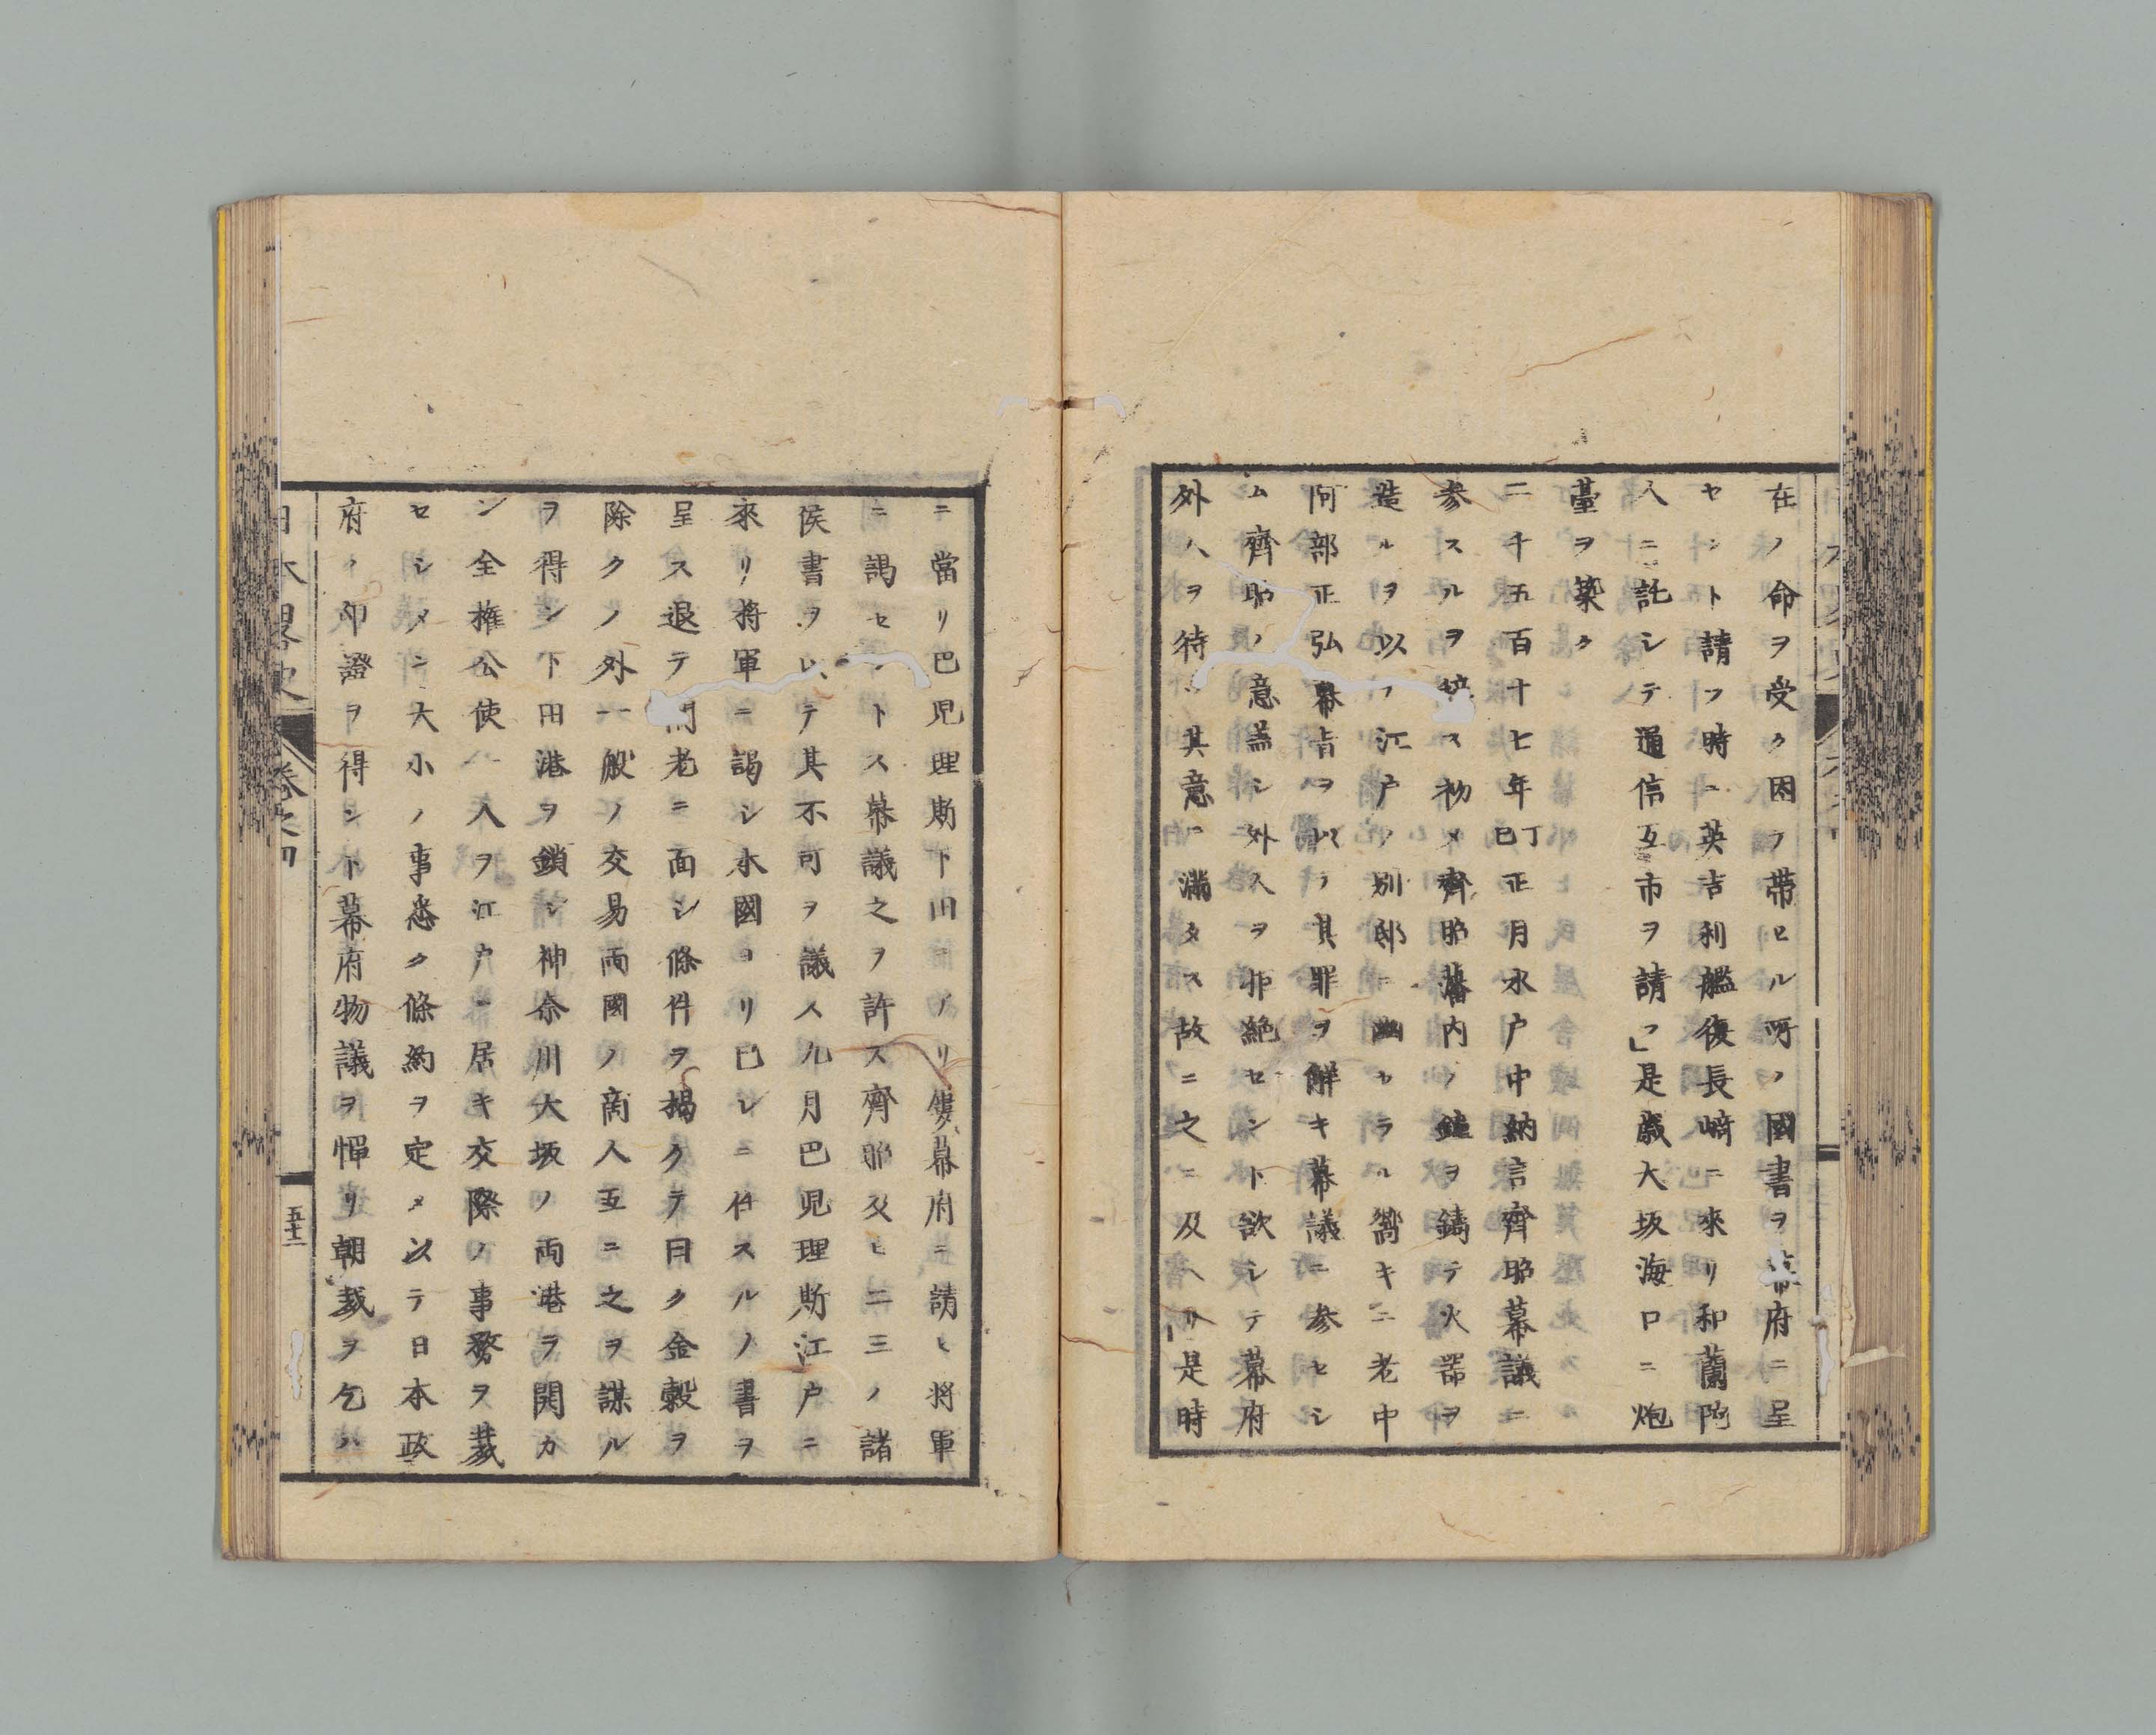 在ノ命ヲ受ク因テ帯セル所ノ國書ヲ幕府ニ呈
セント請フ時ニ英吉利艦復長﨑ニ來リ和蘭陀
人ニ託シテ通信互市ヲ請フ」是歳大坂海口ニ炮
臺ヲ築ク
二千五百十七年丁巳正月水户中納言齊昭幕議ニ
参スルヲ辞ス初メ齊昭藩内ノ鐘ヲ鑄テ火器ヲ
造ルヲ以テ江户ノ別邸ニ幽セラル嚮キニ老中
阿部正弘幕旨ヲ以テ其罪ヲ解キ幕議ニ参セシ
ム齊昭ノ意蓋シ外人ヲ拒絶セント欲シテ幕府
外人ヲ待ツ其意ニ滿タス故ニ之ニ及ヘリ」是時
ニ當リ巴児理斯下田ニアリ屢幕府ニ請ヒ将軍
ニ謁セントス幕議之ヲ許ス齊昭及ヒ二三ノ諸
侯書ヲ以テ其不可ヲ議ス九月巴児理斯江户ニ
來リ将軍ニ謁シ本國ヨリ已レニ任スルノ書ヲ
呈ス退テ閣老ニ面シ條件ヲ揭ケテ曰ク金穀ヲ
除クノ外一般ノ交易両國ノ商人互ニ之ヲ謀ル
ヲ得ン下田港ヲ鎖シ神奈川大坂ノ両港ヲ開カ
ン全權公使一人ヲ江户ニ居キ交際ノ事務ヲ裁
セシメン大小ノ事悉ク條約ヲ定メ以テ日本政
府ノ印證ヲ得ント幕府物議ヲ憚リ朝裁ヲ乞ハ
日本畧史
卷之四
五十二